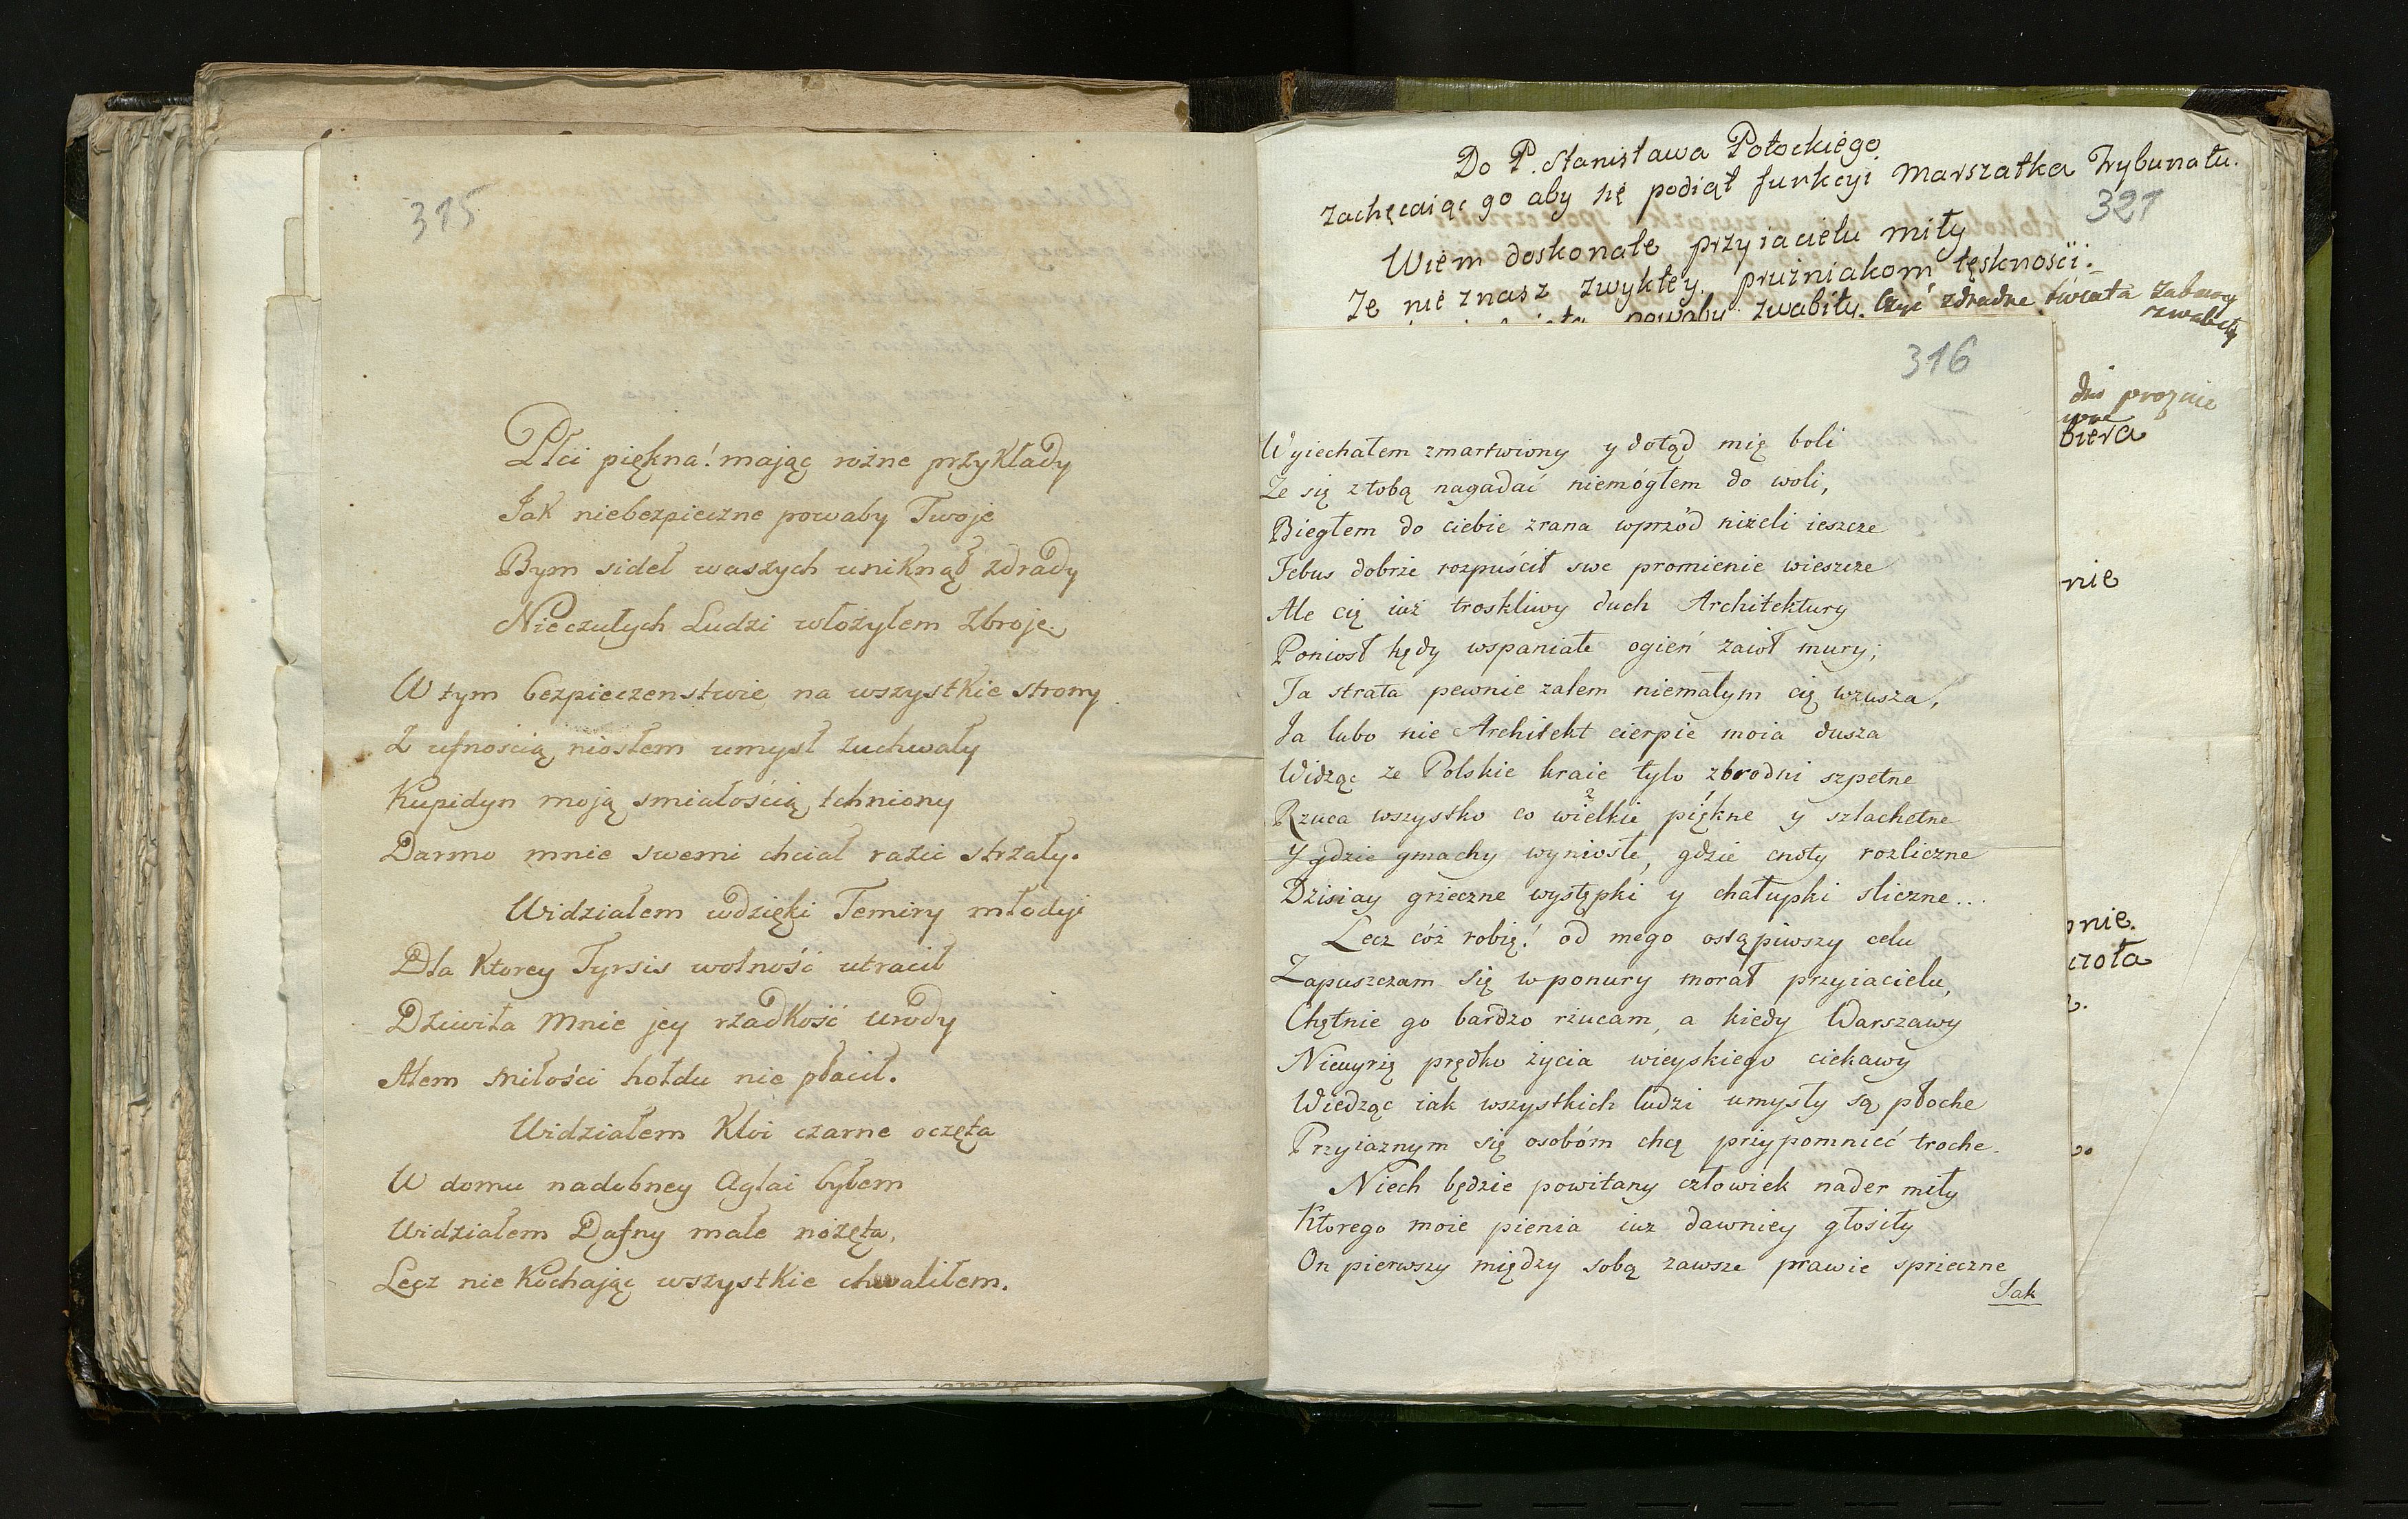 315
Płci piękna! mając rożne przykłady
Jak niebezpieczne powaby Twoje
Bym sideł waszych uniknął zdrady
Nieczułych Ludzi włożyłem Zbroję.
W tym bezpieczenstwie na wszystkie strony
Z ufnością niosłem umysł zuchwały
Kupidyn moją smiałością tchniony
Darmo mnie swemi chciał razić strzały.
Widziałem wdzięki Temiry młodyi
Dla Ktorey Tyrsis wolność utracił
Dziwiła Mnie jey rzadkość urody
Alem Miłości hołdu nie płacił.
Widziałem Kloi czarne oczęta
W domu nadobney Aglai byłem
Widziałem Dafny małe nożęta,
Lecz nie Kochając wszystkie chwaliłem.
Do P. Stanisława Potockiego
zachęcaiąc go aby się podiął funkcyi Marszałka Trybunału.
321
Wiem doskonale przyiacielu miły
Ze nie znasz zwykłey prużniakom tęskności.
powaby zwabiły. Czyć zdradne świata zabawy
zwabiły
316
dni proznie
biera
nie
nie.
czoła
Wyiechałem zmartwiony y dotąd mię boli
Ze się z tobą nagadać niemógłem do woli,
Biegłem do ciebie zrana wprzód niżeli ieszcze
Febus dobrze rozpuścił swe promienie wieszcze
Ale cię iuż troskliwy duch Architektury
Poniosł kędy wspaniałe ogień zaioł mury;
Ta strata pewnie żalem niemałym cię wzusza,
Ja lubo nie Architekt cierpie moia dusza
Widząc ze Polskie kraie tylo zbrodni szpetne
Rzuca wszystko co wielkie piękne y szlachetne
Y gdzie gmachy wyniosłe, gdzie cnoty rozliczne
Dzisiay grzeczne występki y chałupki sliczne...
Lecz cóż robię! od mego ostąpiwszy celu
Zapuszczam się w ponury morał przyiacielu,
Chętnie go bardzo rzucam, a kiedy Warszawy
Nieuyrię prędko życia wieyskiego ciekawy
Wiedząc iak wszystkich ludzi umysły są płoche
Przyiaznym się osobóm chcę przypomnieć troche.
Niech będzie powitany człowiek nader miły
Ktorego moie pienia iuz dawniey głosiły
On pierwszy między sobą zawsze prawie sprzeczne
Tak